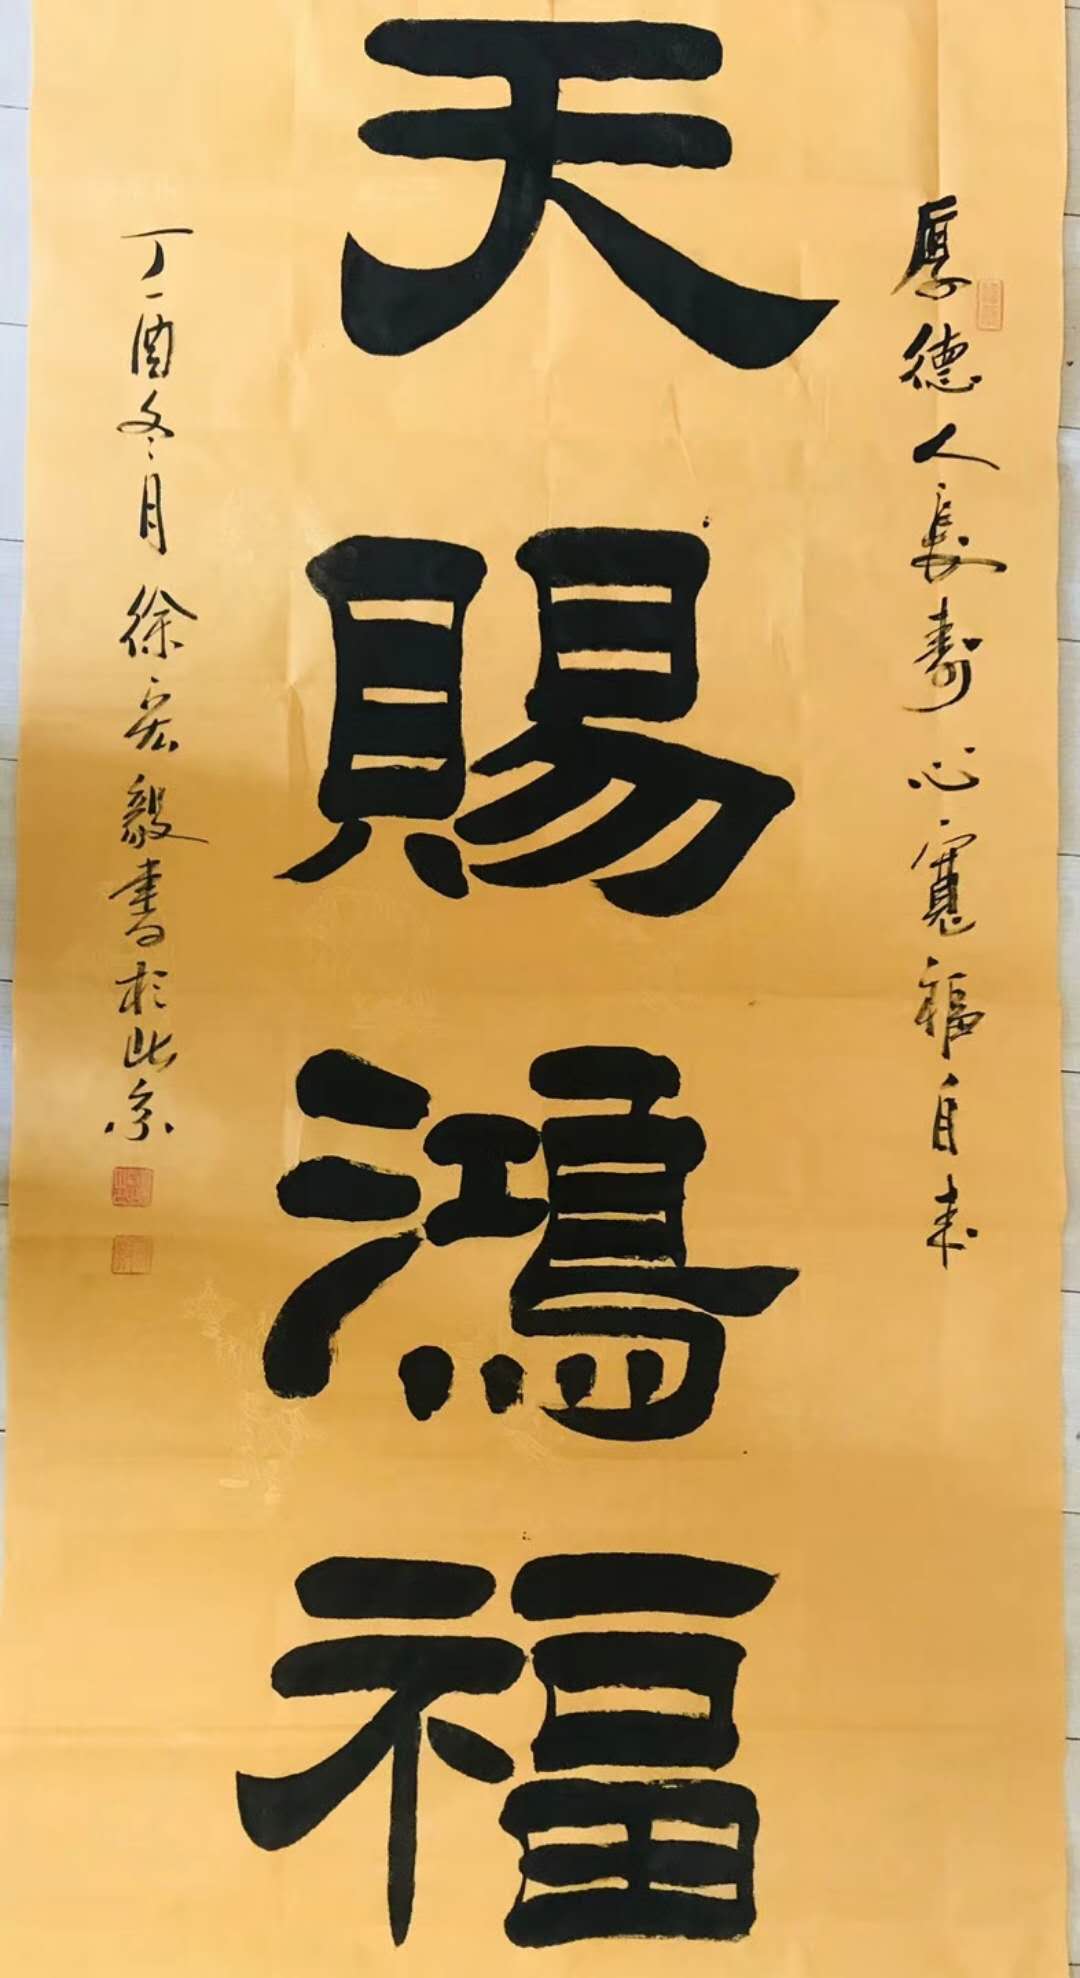 厚德人長壽心寬福自来
天賜鴻福
丁酉冬月徐宏毅書於北京